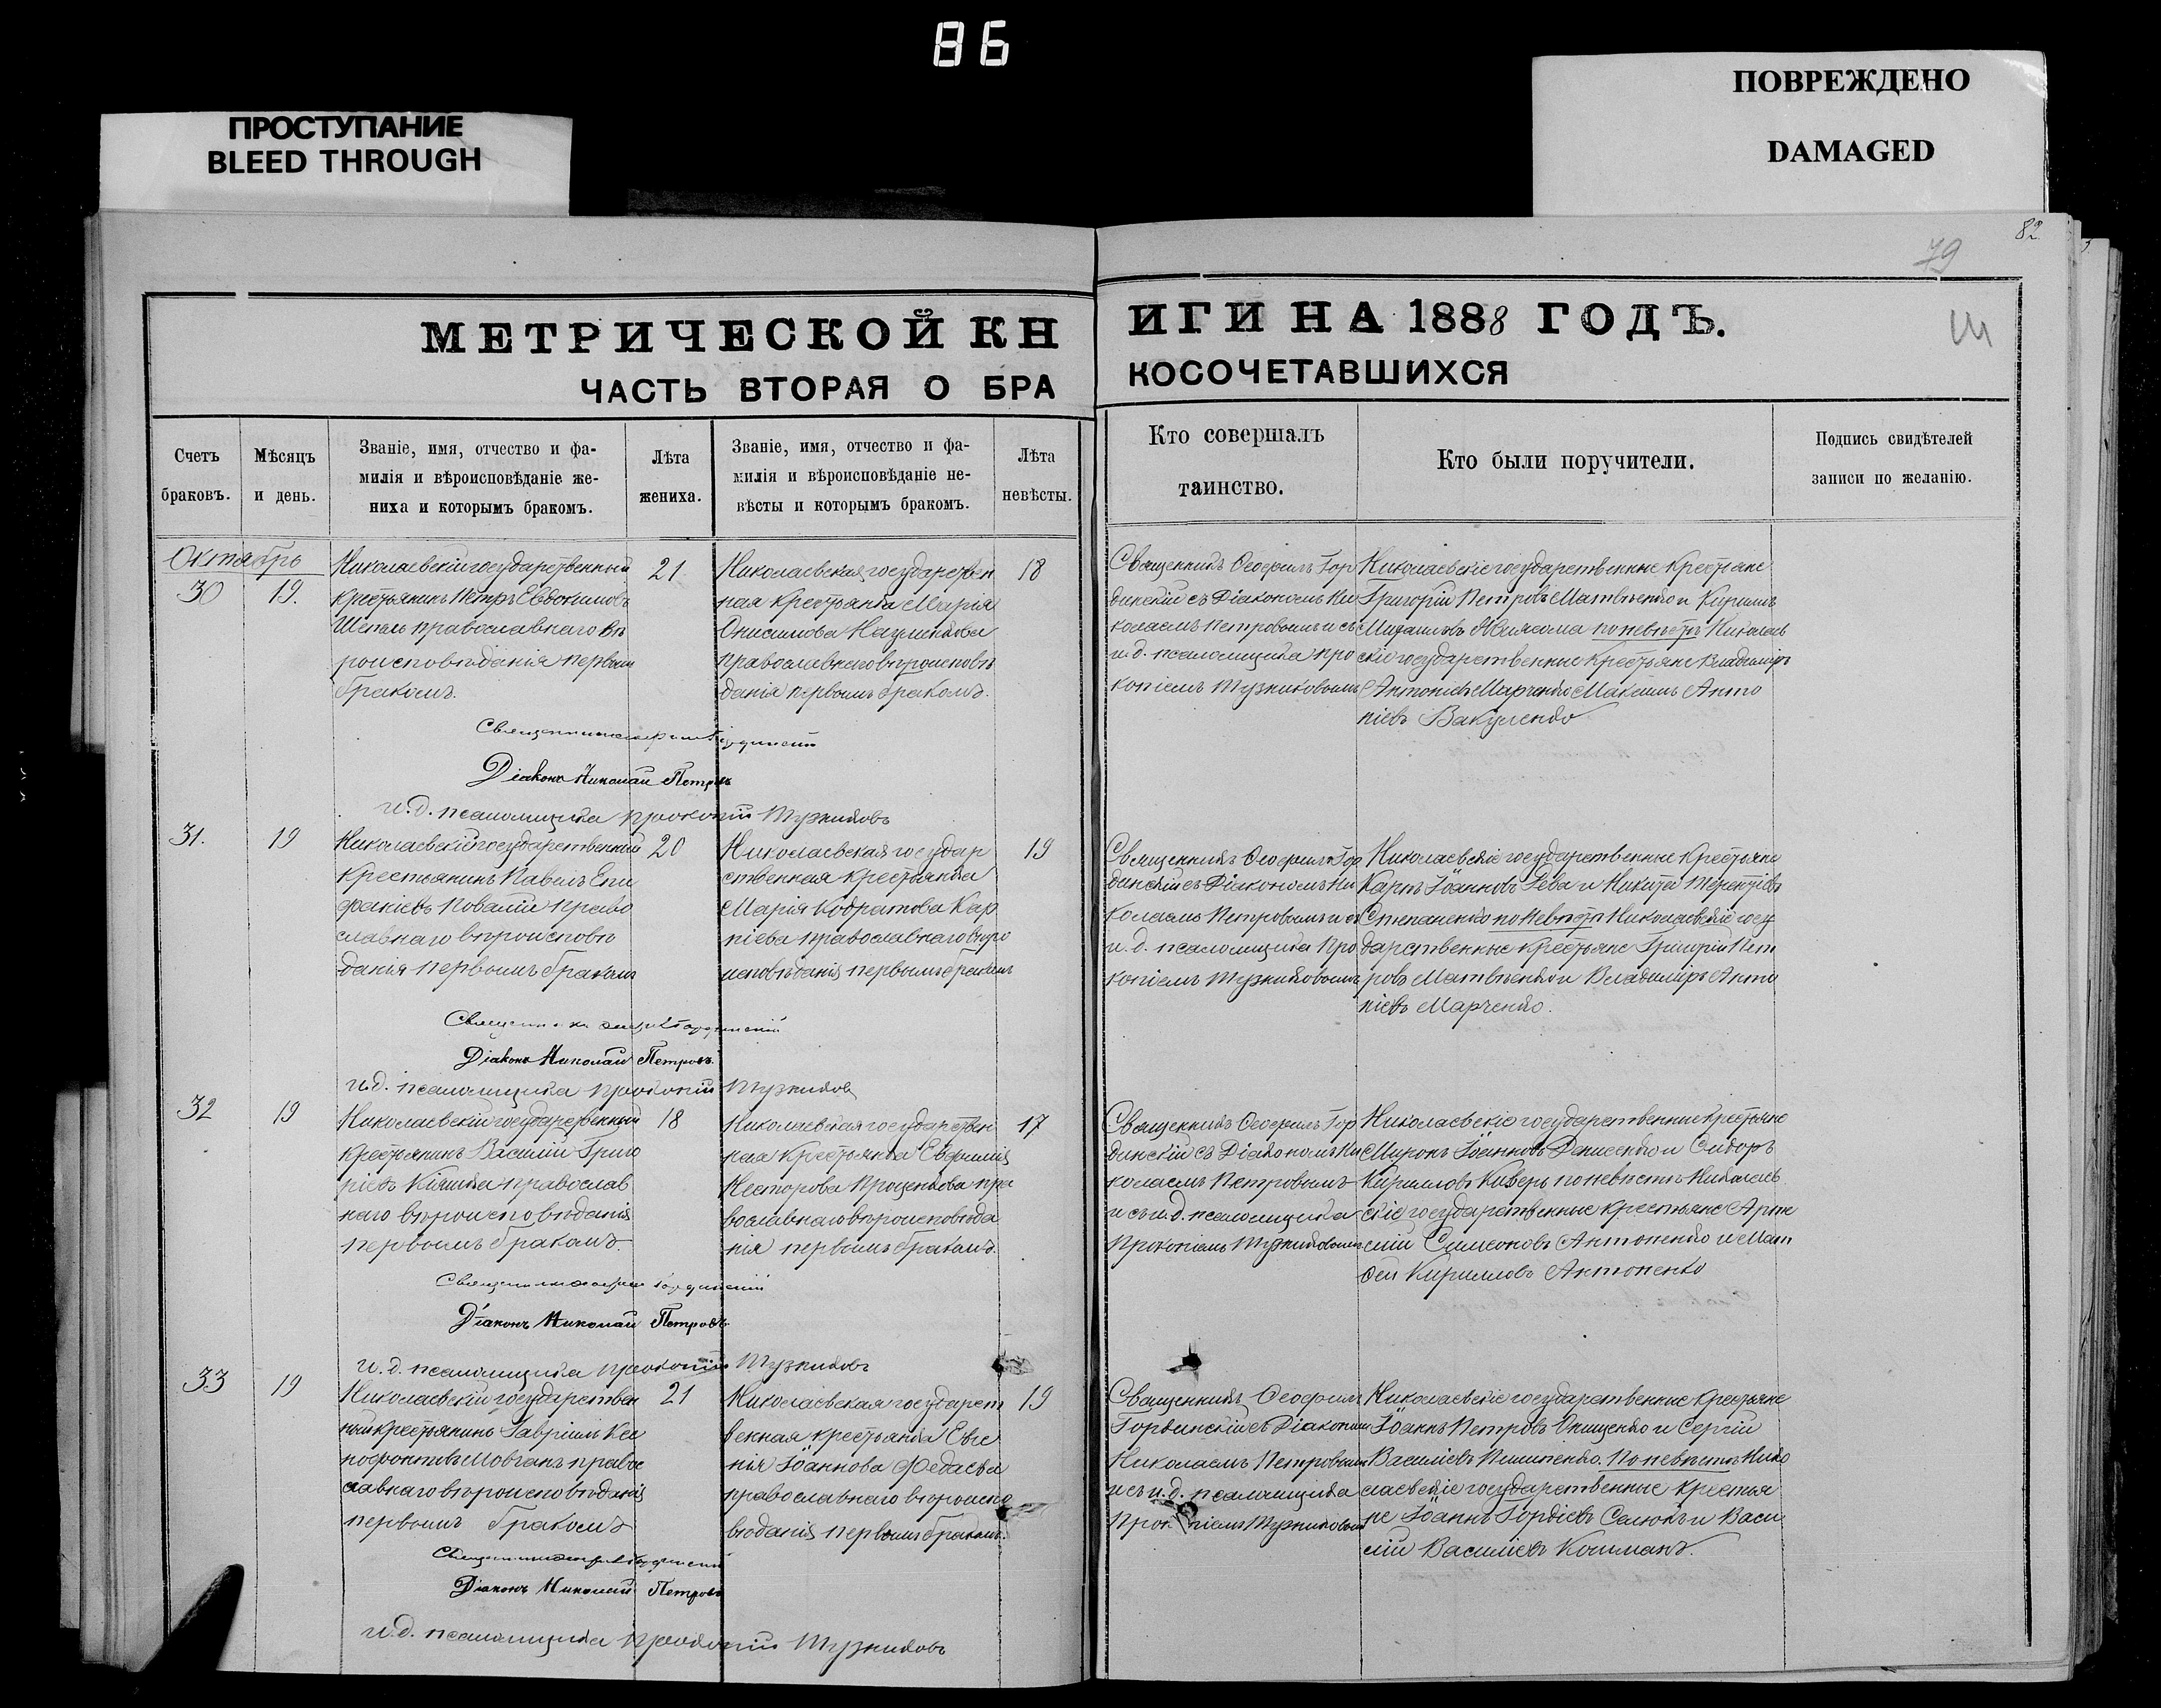 86
ПРОСТУПАНИЕ
BLEED THROUGH
ПОВРЕЖДЕНО
DAMAGED
82
79
МЕТРИЧЕСКОЙ КНИГИ НА 1888 ГОДЪ.
ЧАСТЬ ВТОРАЯ О БРАКОСОЧЕТАВШИХСЯ
Счетъ
браковъ.
Мѣсяцъ
и день.
Званіе, имя, отчество и фа-
милія и вѣроисповѣданіе же-
ниха и которымъ бракомъ.
Лѣта
жениха.
Званіе, имя, отчество и фа-
милія и вѣроисповѣданіе не-
вѣсты и которымъ бракомъ.
Лѣта
невѣсты.
Кто совершалъ
таинство.
Кто были поручители.
Подпись свидѣтелей
записи по желанію.
Октябрь
30
19.
Николаевскій государственный
крестьянинъ Петръ Евдокимовъ
Шепель православнаго вѣ
роисповѣданія первымъ
бракомъ.
21
Николаевская государствен
ная крестьянка Марія
Онисимова Науменкова
православнаго вѣроисповѣ
данія первымъ бракомъ.
18
Священникъ Ѳеофилъ Гор
динскій съ Діакономъ Ни
колаемъ Петровымъ и съ
и.д. псаломщика Про
копіемъ Тузниковымъ
Николаевскіе государственные крестьяне
Григорій Петровъ Матвѣенко и Кириллъ
Михаиловъ по невѣстѣ Николаев
скіе государственные крестьяне Владиміръ
Антоніевъ Марченко Максимъ Анто
ніевъ Вакуленко
Священникъ Ѳеофилъ Гординскій
Діаконъ Николай Петровъ
и.д. псаломщика Прокопій Тузниковъ
31.
19
Николаевскій государственный
крестьянинъ Павелъ Епи
фаніевъ Повалій право
славнаго вѣроисповѣ
данія первымъ бракомъ
20
Николаевская государ
ственная крестьянка
Марія Кодратова Кар
піева православнаго вѣро
исповѣданія первымъ бракомъ
19
Священникъ Ѳеофилъ Гор
динскій съ Діакономъ Ни
колаемъ Петровымъ и съ
и.д. псаломщика Про
копіемъ Тузниковымъ
Николаевскіе государственные крестьяне
Карпъ Іоанновъ Рева и Никита Терентіевъ
Степаненко по невѣстѣ Николаевскіе госу
дарственные крестьяне Григорій Пет
ровъ Матвѣенко и Владиміръ Анто
ніевъ Марченко.
Священникъ Ѳеофилъ Гординскій
Діаконъ Николай Петровъ.
и.д. псаломщика Прокопій Тузниковъ
32
19
Николаевскій государственный
крестьянинъ Василій Григо
ріевъ Кіяшка православ
наго вѣроисповѣданія
первымъ бракомъ.
18
Николаевская государствен
ная крестьянка Евфимія
Несторова Проценкова пра
вославнаго вѣроисповѣда
нія первымъ бракомъ.
17
Священникъ Ѳеофилъ Гор
динскій съ Діакономъ Ни
колаемъ Петровымъ
и съ и.д. псаломщика
Прокопіемъ Тузниковымъ
Николаевскіе государственные крестьяне
Миронъ Іоанновъ Денисенко и Сидоръ
Кирилловъ Киверь по невѣстѣ Николаев
скіе государственные крестьяне Арте
мій Симеоновъ Антоненко и Мат
ѳей Кирилловъ Антоненко
Священникъ Ѳеофилъ Гординскій
Діаконъ Николай Петровъ.
и.д. псаломщика Прокопій Тузниковъ
33
19
Николаевскій государствен
ный крестьянинъ Гавріилъ Ксе
нофонтовъ Мовчанъ правос
лавнаго вѣроисповѣданія
первымъ бракомъ
21
Николаевская государст
венная крестьянка Евге
нія Іоаннова Федаева
православнаго вѣроиспо
вѣданія первымъ бракомъ.
19
Священникъ Ѳеофилъ
Гординскій съ Діакономъ
Николаемъ Петровымъ
и съ и.д. псаломщика
Прокопіемъ Тузниковымъ
Николаевскіе государственные крестьяне
Іоаннъ Петровъ Онищенко и Сергій
Василіевъ Пилипенко. По невѣстѣ Нико
лаевскіе государственные крестья
не Іоаннъ Гордіевъ Селюкъ и Васи
лій Василіевъ Кошманъ.
Священникъ Ѳеофилъ Гординскій
Діаконъ Николай Петровъ
и.д. псаломщика Прокопій Тузниковъ